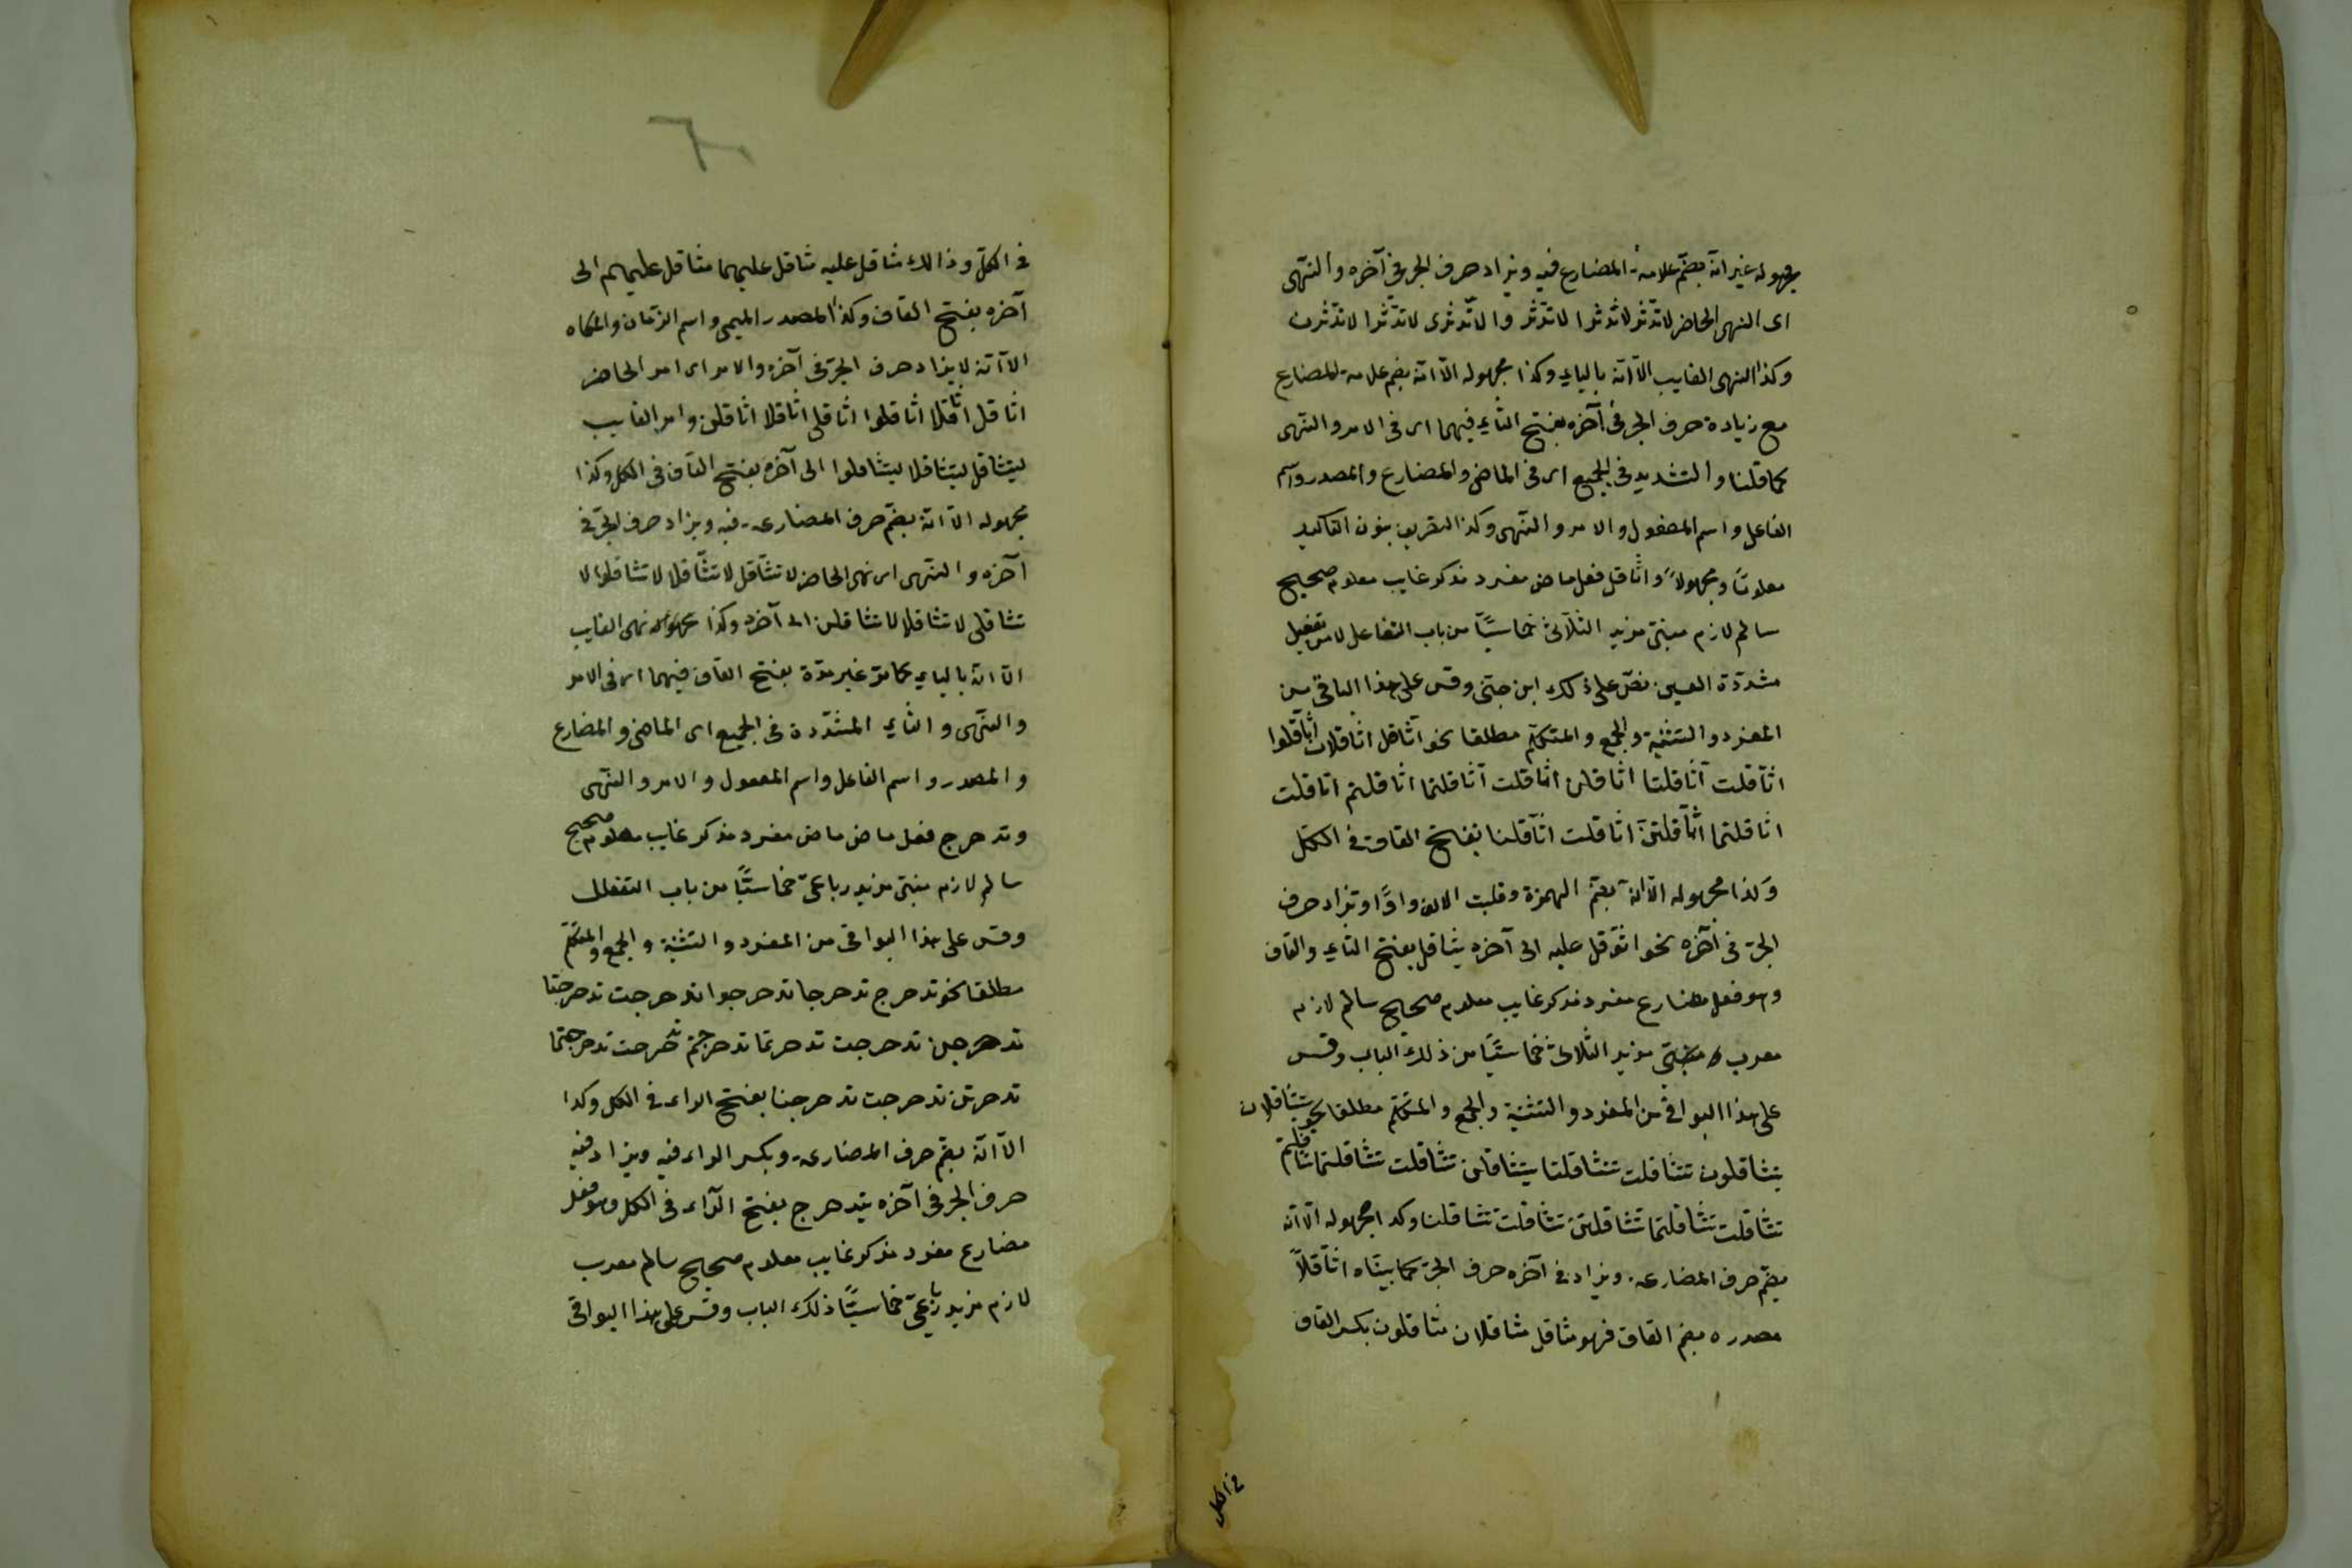 مجهوله غير انّه بضمّ علامة المضارع فيه ويزاد حرف الجر فى آخره والنّهى
اى النهى الحاضر لا تدّثر لا تدّثرا لا تدّثروا لا تدّثرى لا تدّثرا لا تدّثرن
وكذا النهى الغايب الّا انّه بالياء وكذا مجهوله الّا انّه بضم علامة المضارع
مع زيادة حرف الجر فى آخره بفتح الثاء فيهما اى فى الامر والنّهى
كما قلنا والتشديد فى الجميع اى فى الماضى والمضارع والمصدر واسم
الفاعل واسم المفعول والامر والنّهى وكذا التصريف بنون التاكيد
معلومًا ومجهولاً واثّاقل فعل ماض مفرد مذكر غايب معلوم صحيح
سالم لازم مبنى مزيد الثلاثى خماسيًّا من باب التفاعل لا من تفعيل
مشددة العين نصّ على ذلك ابن جنى وقس على هذا الباقى من
المفرد والتثنية والجمع والمتكلّم مطلقا نحو اثّاقل اثّاقلا اثّاقلوا
اثّاقلت اثّاقلتا اثّاقلن اثّاقلت اثّاقلتما اثّاقلتم اثّاقلت
اثّاقلتما اثّاقلتنّ اثّاقلت اثّاقلنا بفتح القاف فى الكلّ
وكذا مجهوله الّا انّه بضمّ الهمزة وقلبت الالف واوًا وتزاد حرف
الجرّ فى آخره نحو اثّوقل عليه الى آخره يثّاقل بفتح الثاء والقاف
وهو فعل مضارع مفرد مذكر غايب معلوم صحيح سالم لازم
معرب مزيد الثلاثى خماسيًّا من ذلك الباب وقس
على هذا البواقى من المفرد والتثنية والجمع والمتكلّم مطلقا نحو يتثاقلان
يتثاقلون تتثاقلت تتثاقلتا يتثاقلن تتثاقلت تتثاقلتما تثاقلتم
تتثاقلت تتثاقلتما تتثاقلتنّ تتثاقلت تتثاقلنا وكذا مجهوله الّا انّه
بضمّ حرف المضارعة ويزاد فى آخره حرف الجرّ كما بيّنّاه اثّاقلًا
مصدره بضم القاف فهو مثاقل مثاقلان مثاقلون بكسر القاف
فى الكل
فى الكلّ وذالك مثاقل عليه مثاقل عليهما مثاقل عليهم الى
آخره بفتح القاف وكذا المصدر الميمى واسم الزمان والمكان
الّا انّه لا يزاد حرف الجرّ فى آخره والامر اى امر الحاضر
اثّاقل اثّاقلا اثّاقلوا اثّاقلى اثّاقلا اثّاقلن وامر الغايب
ليتثاقل ليتثاقلا ليتثاقلوا الى آخره بفتح القاف فى الكل وكذا
مجهوله الّا انّه بضمّ حرف المضارعة فيه ويزاد حرف الجرّ فى
آخره والنّهى اى نهى الحاضر لا تثّاقل لا تثّاقلا لا تثاقلوا لا
تثاقلى لا تثاقلا لا تثاقلن الى آخره وكذا مجهوله نهى الغايب
الّا انّه بالياء كما مرّ غير مرّة بفتح القاف فيهما اى فى الامر
والنّهى والثاء المشدّدة فى الجميع اى الماضى والمضارع
والمصدر واسم الفاعل واسم المفعول والامر والنّهى
وتدحرج فعل ماض ماض مفرد مذكر غايب معلوم صحيح
سالم لازم مبنى مزيد رباعىّ خماسيًّا من باب التفعلل
وقس على هذا البواقى من المفرد والتثنية والجمع والمتكلم
مطلقا نحو تدحرج تدحرجا تدحرجوا تدحرجت تدحرجتا
تدحرجن تدحرجت تدحرتما تدحرجتم تدحرجت تدحرجتما
تدحرتن تدحرجت تدحرجنا بفتح الراء فى الكل وكذا
الّا انّه بضمّ حرف المضارعة وبكسر الراء فيه ويزاد فيه
حرف الجر فى آخره يتدحرج بفتح الرّاء فى الكل وهو فعل
مضارع مفرد مذكر غايب معلوم صحيح سالم معرب
لازم مزيد رباعىّ خماسيًّا ذلك الباب وقس على هذا البواقى